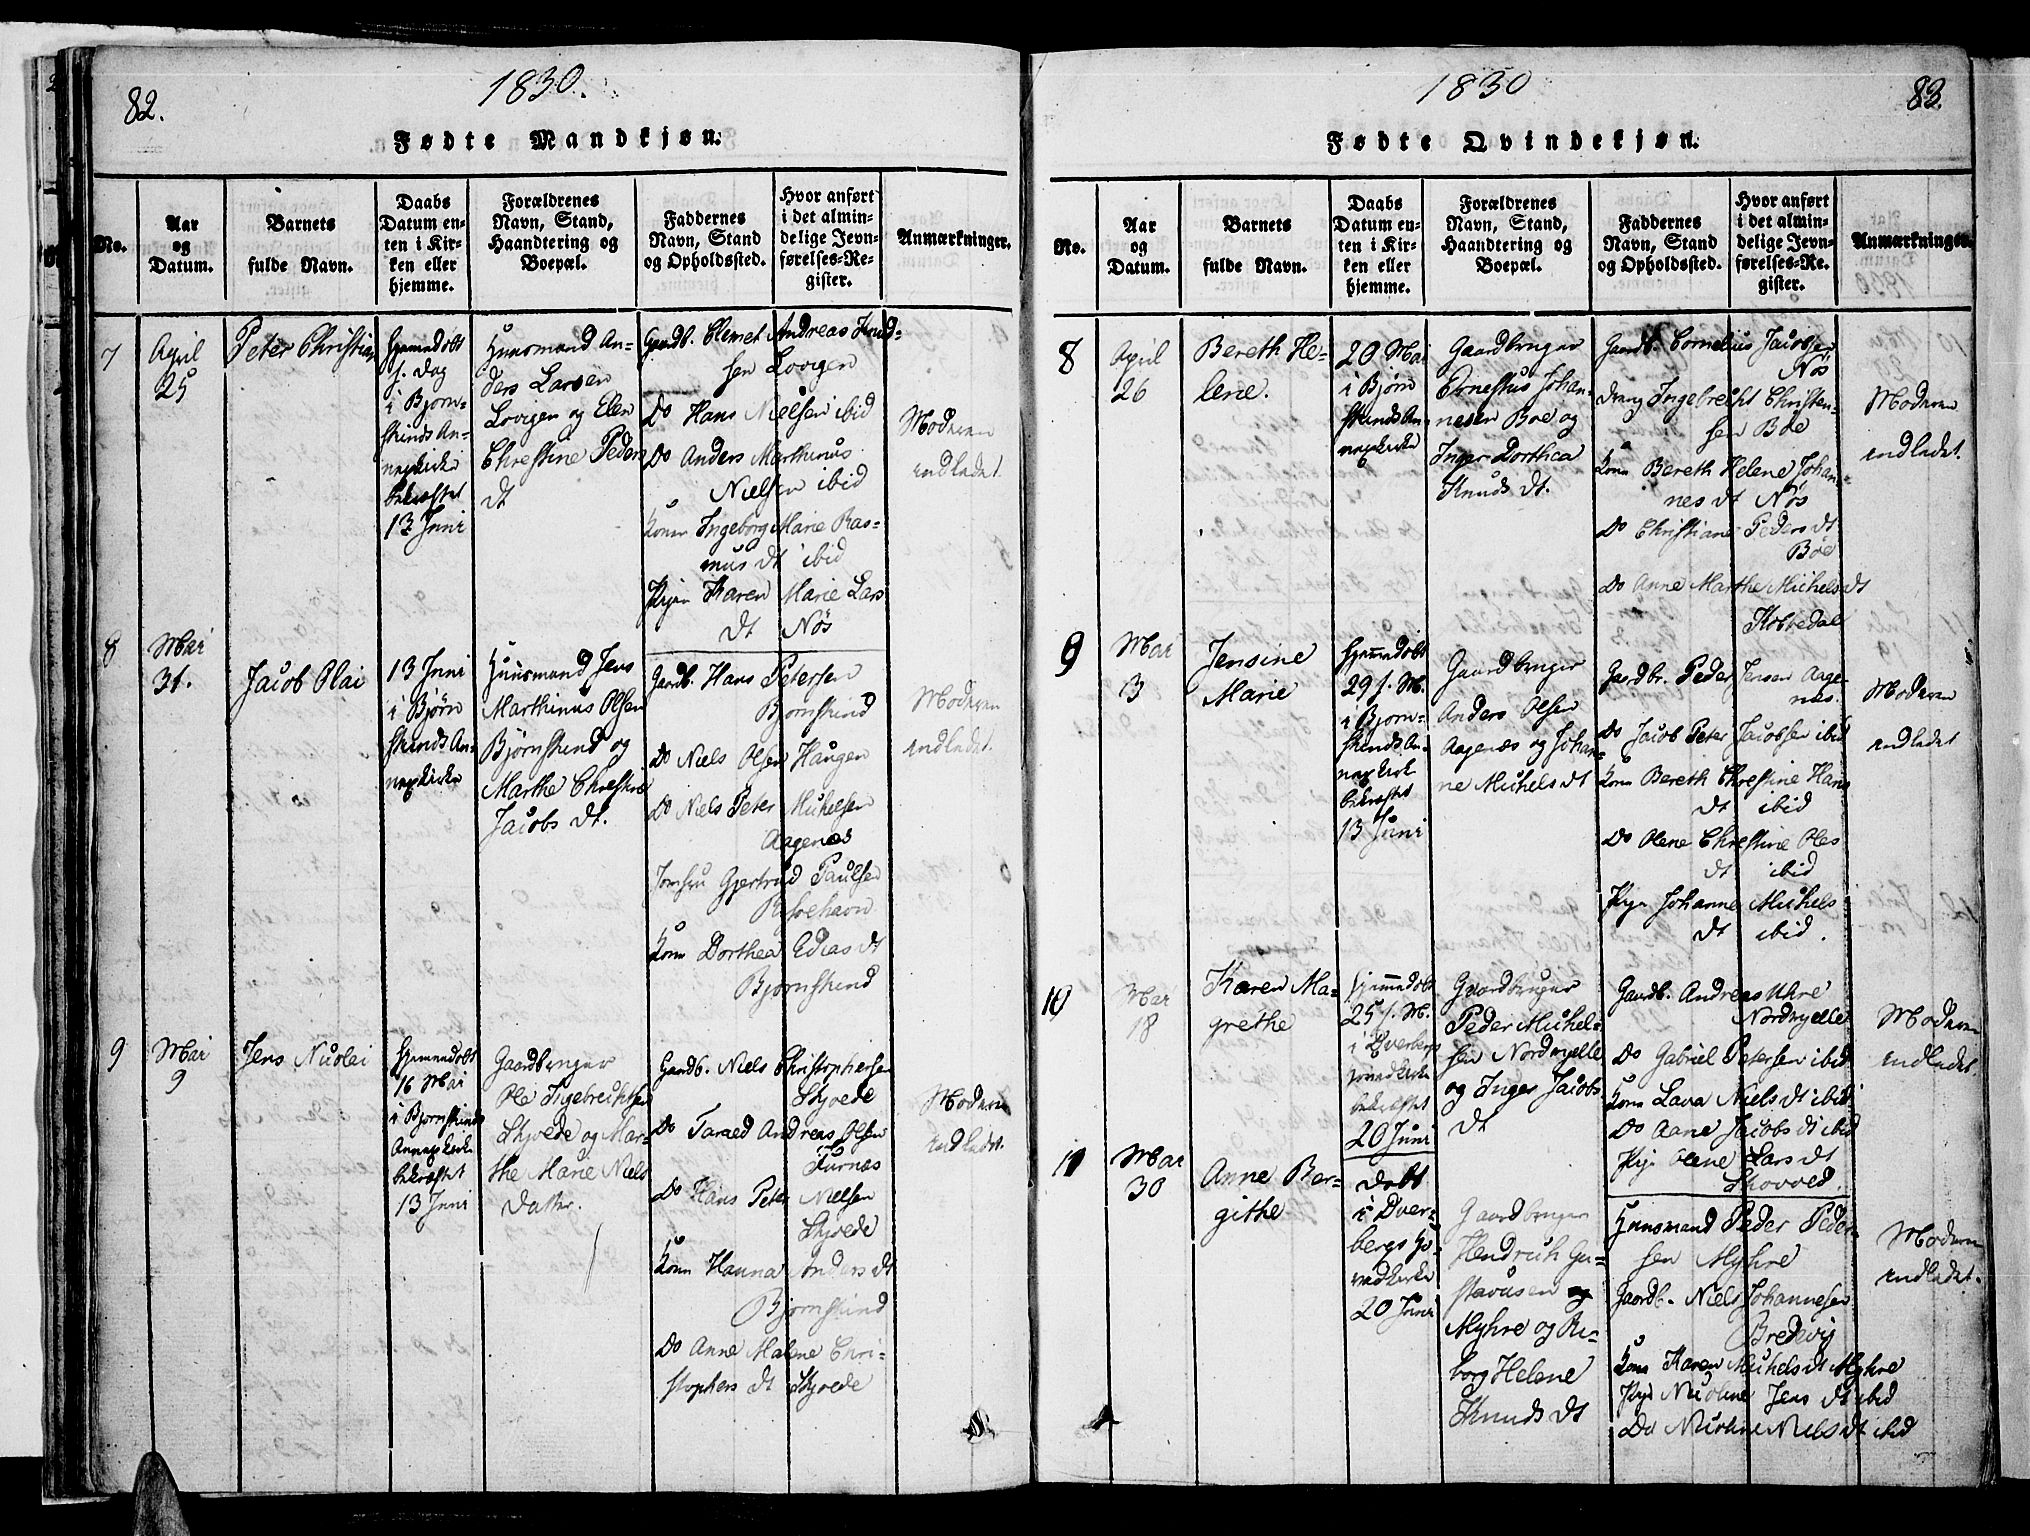 82.
1830.
Fødte Mandkjøn.
No.
Aar
og
Datum.
Barnets
fulde Navn.
Daabs
Datum en-
ten i Kir-
ken eller
hjemme.
Forældrenes
Navn, Stand,
Haandtering og
Boepæl.
Faddernes
Navn, Stand
og Opholdssted.
Hvor anført
i det almin-
delige Jevn-
førelses-Re-
gister.
Anmærkninger.
7
April
25
Peter Christian
Hjemmedøbt
s. Dag
i Bjørn-
skinds An-
nexkirke
bekræftet
13 Juni
Huusmand An-
ders Larsen
Lovigen og Elen
Chrestine Peders
dt
Gaardb. Clemet Andreas Knud-
sen Lovigen
Do Hans Nielsen ibid
Do Anders Marthinus
Nielsen ibid
Kone Ingeborg Marie Ras-
mus dt ibid
Pigen Karen Marie Lars
dt Nös
Moderen
indledet
8
Mai
31.
Jacob Olai
13 Juni
i Bjørn
skinds An-
nexkirke
Huusmand Jens
Marthinus Olsen
Bjørnskind og
Marthe Chrestine
Jacobs dt.
Gaardb. Hans Petersen
Bjørnskind
Do Niels Olsen Haugen
Do Niels Peter Michelsen
Aagenæs
Jomfru Gjertrud Paulsen
Risøehavn
Kone Dorthea Edias dt
Bjørnskind
Moderen
indledet.
9
Mai
9
Jens Nicolai
Hjemmedøbt
16 Mai
i Bjørnskinds
Annexkirke
bekræftet
13 Juni
Gaardbruger
Ole Ingebrechtsen
Skjoede og Mar-
the Marie Niels
Datter.
Gaardb. Niels Christophersen
Skjoede
Do Taraed Andreas Olsen
Furnæs
Do Hans Peter Nielsen
Skjoede
Kone Hanna Anders dt
Bjørnskind
Do Anne Malene Chri-
stophers dt Skjoede
Moderen
indledet.
1830
83.
Fødte Qvindekjøn.
No.
Aar
og
Datum.
Barnets
fulde Navn.
Daabs
Datum en-
ten i Kir-
ken eller
hjemme.
Forældrenes
Navn, Stand,
Haandtering og
Boepæl.
Faddernes
Navn, Stand
og Opholdssted.
Hvor anført
i det almin-
delige Jevn-
førelses-Re-
gister.
Anmærkninger.
8
April
26
Bereth He-
lene.
20 Mai
i Bjørn
skinds An-
nexkirke
Gaardbruger
Ernestus Johan-
nesen Boe og
Inger Dorthea
Knuds dt.
Gaardb. Cornelius Jacobsen
Nös
Dreng Ingebrecht Christen-
sen Boe
Kone Bereth Helene Johan-
nes dt Nös
Do Christiane Peders dt
Böe
Do Anne Marthe Michels dt
Kobbedal
Moderen
indledet.
9
Mai
3
Jensine
Marie
Hjemmedøbt
29 s. M.
i Bjørn-
skinds An-
nexkirke
bekræftet
13 Juni
Gaardbruger
Anders Olsen
Aagenæs og Johan-
ne Michels dt
Gaardbr. Peder Jensen Aage-
næs.
Do Jacob Peter Jacobsen ibid
Kone Bereth Chrestine Hans
dt ibid
Do Olene Chrestine Oles
dt ibid
Pige Johanne Michels
dt ibid.
Moderen
indledet
10
Mai
18
Karen Ma-
grethe
Hjemmedøbt
25 s. M.
i Dverbergs
Hovedkirke
bekræftet
20 Juni
Gaardbruger
Peder Michel-
sen Nordmyelle
og Inger Jacobs
dt
Gaardb. Andreas Uhre
Nordmyelle
Do Gabriel Petersen ibid
Kone Lava Niels dt ibid
Do Aane Jacobs dt ibid
Pige Olene Lars dt
Skovold.
Moderen
indledet.
11
Mai
30
Anne Ber-
githe
Døbt
i Dver-
bergs Ho-
vedkirke
20 Juni
Gaardbruger
Hendrich Gu-
stavusen
Myhre og Ri-
borg Helene
Knuds dt
Huusmand Peder Peder-
sen Myhre
Gaardb. Niels Johannesen
Bredvig
Kone Karen Michels dt Myhre
Pige Nicoline Jens dt ibid
Do Nicoline Niels dt ibid
Moderen
indledet.